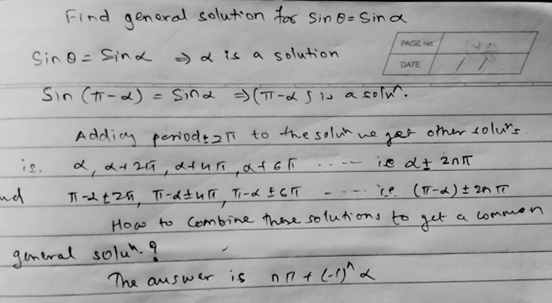 Find general solution for Sin θ = Sin α
PAGE No.
DATE / /
Sin θ = Sin α ⇒ α is a solution
Sin (π-α) = Sin α ⇒ (π-α) is a soluⁿ.
Adding period ±2π to the soluⁿ we get other soluⁿs
is. α, α+2π, α+4π, α+6π ..... ie α ± 2nπ
nd π-α±2π, π-α±4π, π-α±6π ..... i.e. (π-α) ± 2nπ
How to combine these solutions to get a common
general soluⁿ.?
The answer is nπ + (-1)ⁿ α